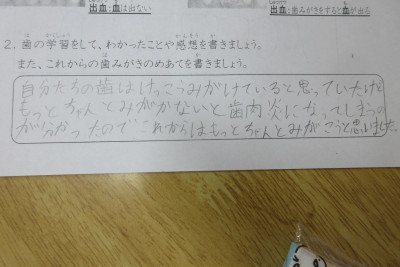 出血:血は出ない
出血:歯みがきをすると血が出る
2. 歯の学習をして、わかったことや感想を書きましょう。
また、これからの歯みがきのめあてを書きましょう。
自分たちの歯はけっこうみがけていると思っていたけど
もっとちゃんとみがかないと歯肉炎になってしまうの
が分かったのでこれからはもっとちゃんとみがこうと思いました。